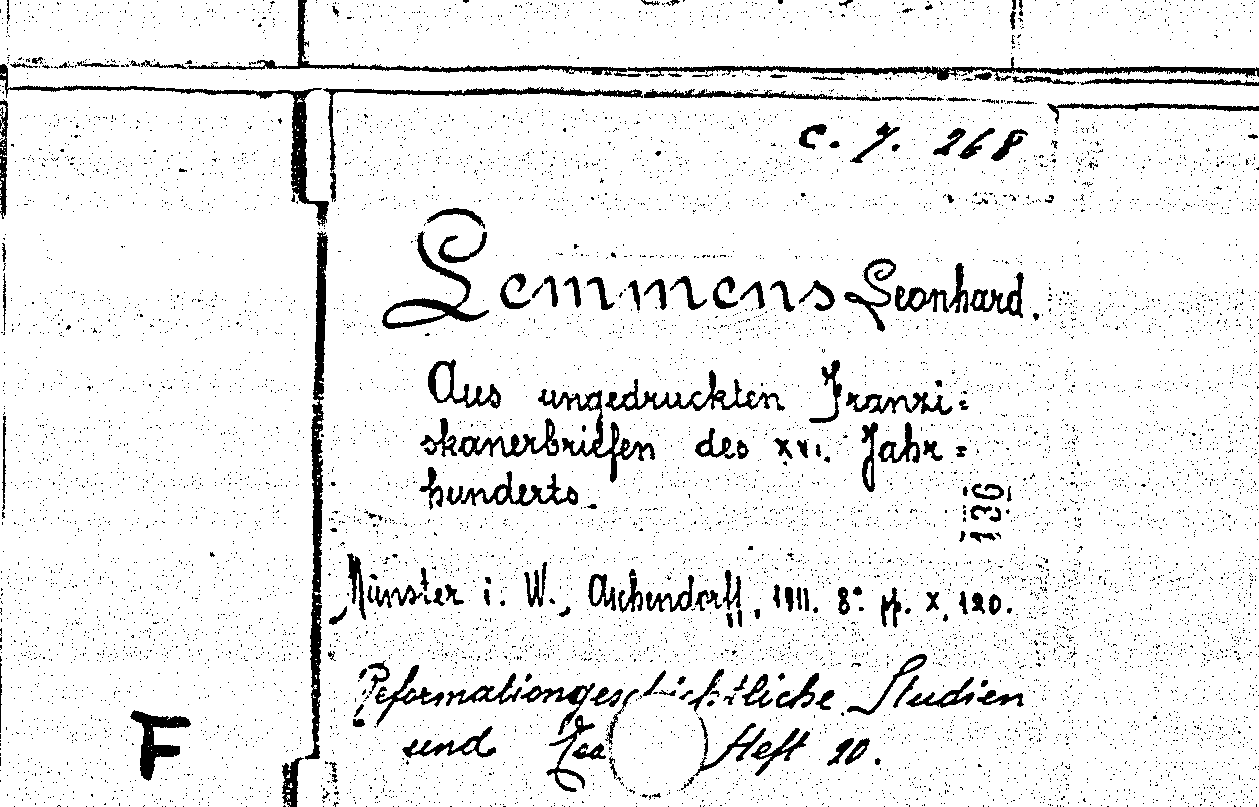 C. 7. 268
Lemmens Leonhard.
Aus ungedruckten Franzi=
skanerbriefen des XVI. Jahr=
hunderts.
136
Münster i. W., Aschendorff, 1911. 8° pp. X, 120.
Reformationgeschichtliche Studien
und Heft 20.
F